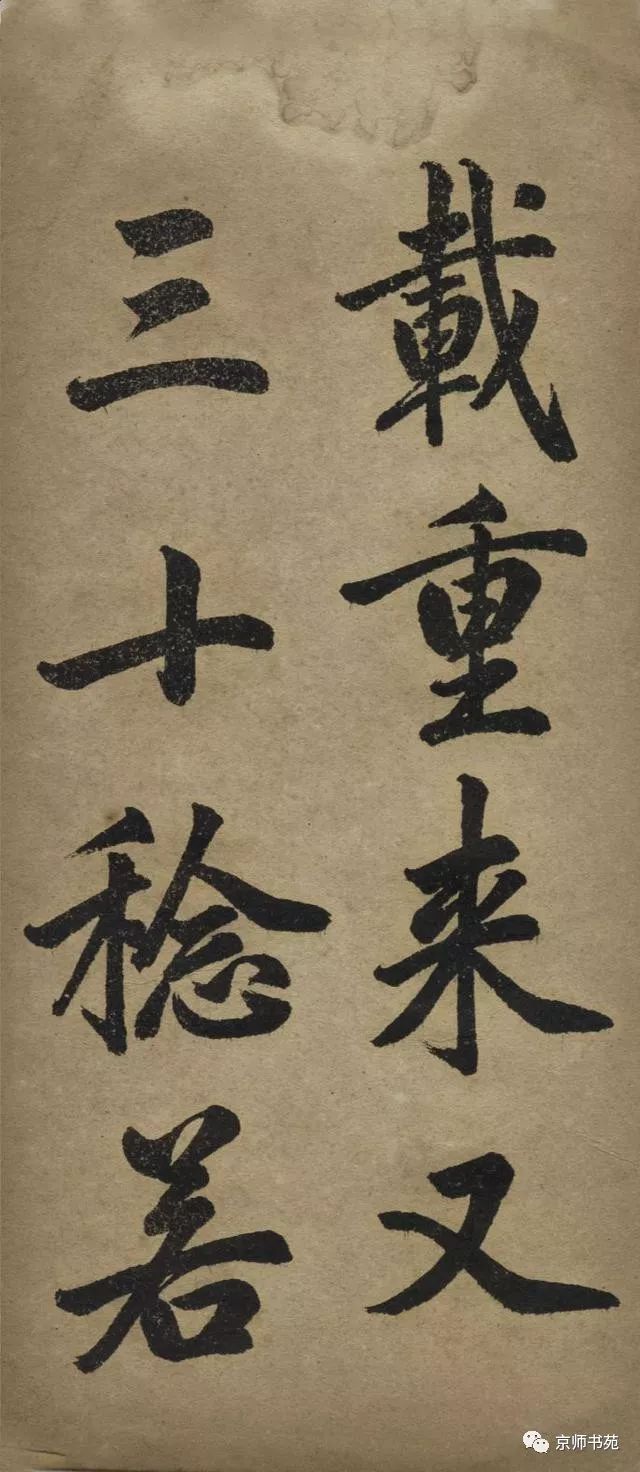 載重来又
三十稔若
京师书苑